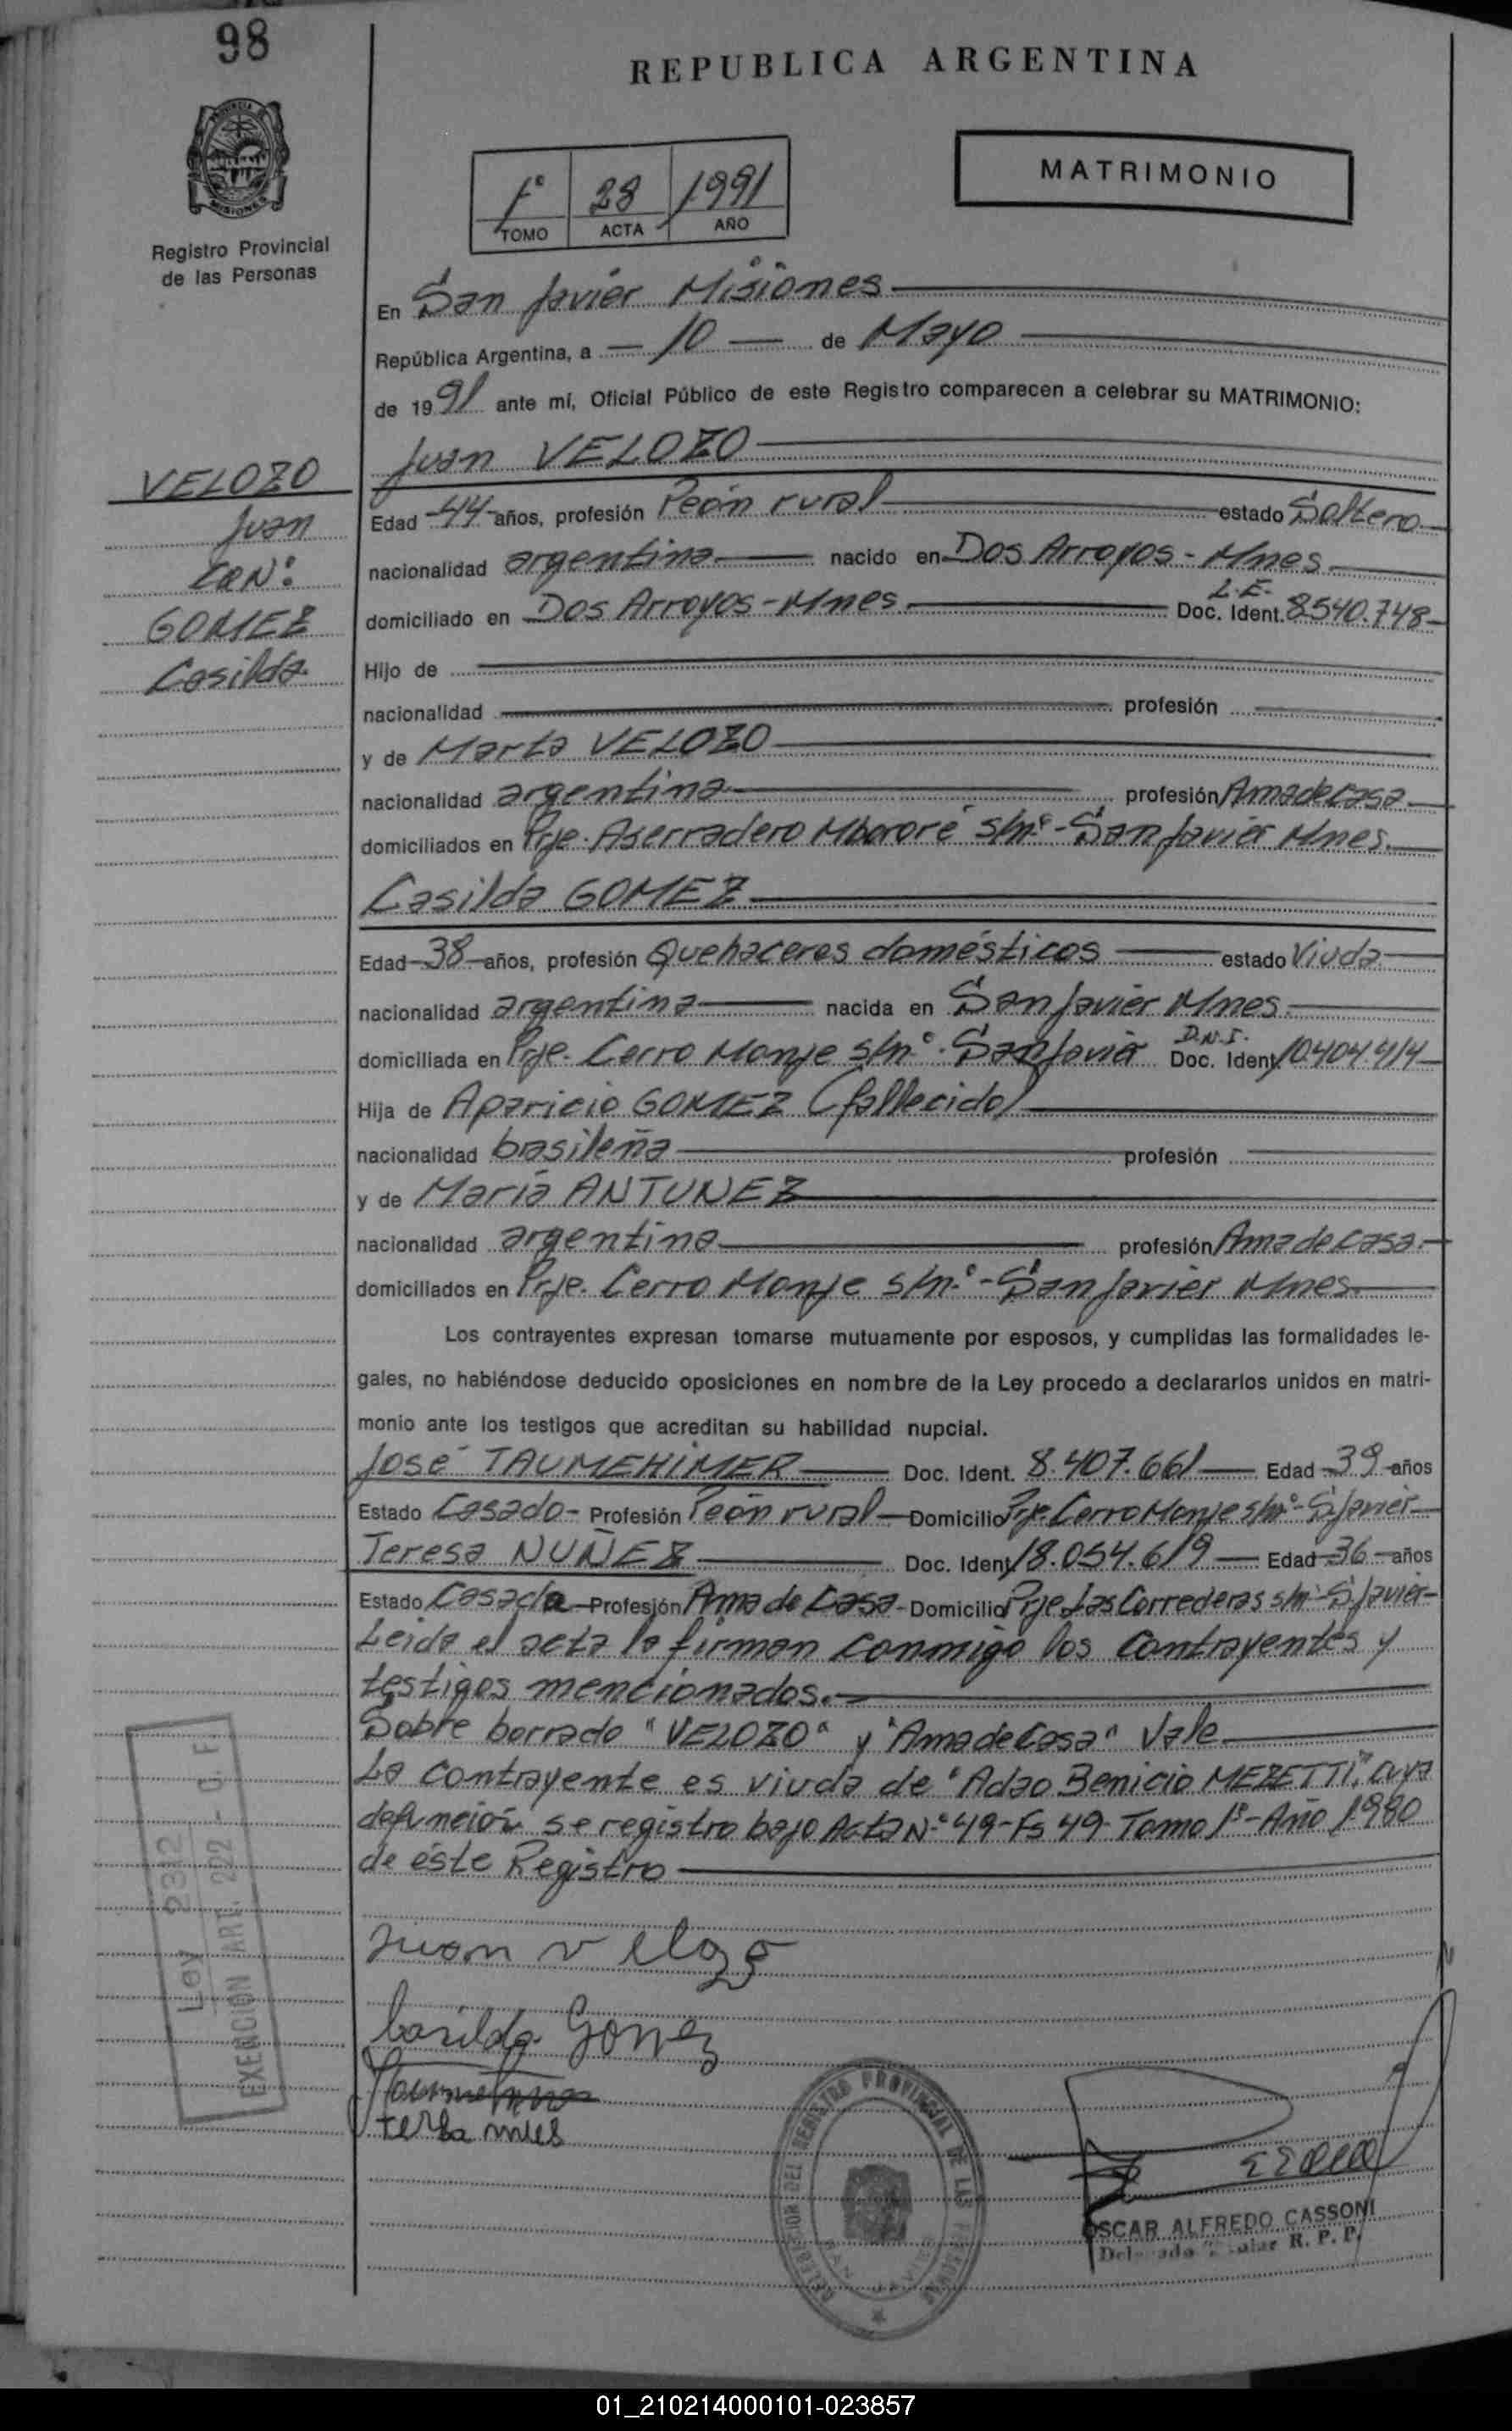 98
REPUBLICA ARGENTINA
PROVINCIA
MISIONES
Registro Provincial
de las Personas
MATRIMONIO
1° 28 1991
TOMO ACTA AÑO
En San Javier Misiones
República Argentina, a 10 de Mayo
de 1991 ante mí, Oficial Público de este Registro comparecen a celebrar su MATRIMONIO:
Juan VELOZO
VELOZO
Juan
CON:
GOMEZ
Casilda
Edad 44 años, profesión Peón rural estado Soltero
nacionalidad argentina nacido en Dos Arroyos - Mnes.
L.E.
domiciliado en Dos Arroyos - Mnes. Doc. Ident. 8.540.748
Hijo de
nacionalidad profesión
y de Marta VELOZO
nacionalidad argentina profesión Ama de casa
domiciliados en Prje. Aserradero Mbororé s/n° - San Javier Mnes.
Casilda GOMEZ
Edad 38 años, profesión Quehaceres domésticos estado Viuda
nacionalidad argentina nacida en San Javier Mnes.
D.N.I.
domiciliada en Prje. Cerro Monje s/n° - San Javier Doc. Ident. 10.404.414
Hija de Aparicio GOMEZ (fallecido)
nacionalidad brasileña profesión
y de María ANTUNEZ
nacionalidad argentina profesión Ama de casa.
domiciliados en Prje. Cerro Monje s/n° - San Javier Mnes.
Los contrayentes expresan tomarse mutuamente por esposos, y cumplidas las formalidades le-
gales, no habiéndose deducido oposiciones en nombre de la Ley procedo a declararlos unidos en matri-
monio ante los testigos que acreditan su habilidad nupcial.
José TAUMEHIMER Doc. Ident. 8.407.661 Edad 39 años
Estado Casado - Profesión Peón rural Domicilio Prje. Cerro Monje s/n° - S. Javier
Teresa NUÑEZ Doc. Ident. 18.054.619 Edad 36 años
Estado Casada Profesión Ama de Casa - Domicilio Prje Las Correderas s/n° - S. Javier
Leida el acta la firman conmigo los contrayentes y
testigos mencionados.
Sobre borrado "VELOZO" y "Ama de Casa" Vale
La contrayente es viuda de "Adao Benicio MEZETTI", cuya
defunción se registro bajo Acta N° 49 - Fs 49 - Tomo 1° - Año 1.980
de éste Registro
Ley 2312
EXENCION ART. 222 - C. F.
Juan velozo
Casilda Gomez
DELEGACION DEL REGISTRO PROVINCIAL DE LAS PERSONAS
OSCAR ALFREDO CASSONI
Delegado Titular R. P. P.
01_210214000101-023857